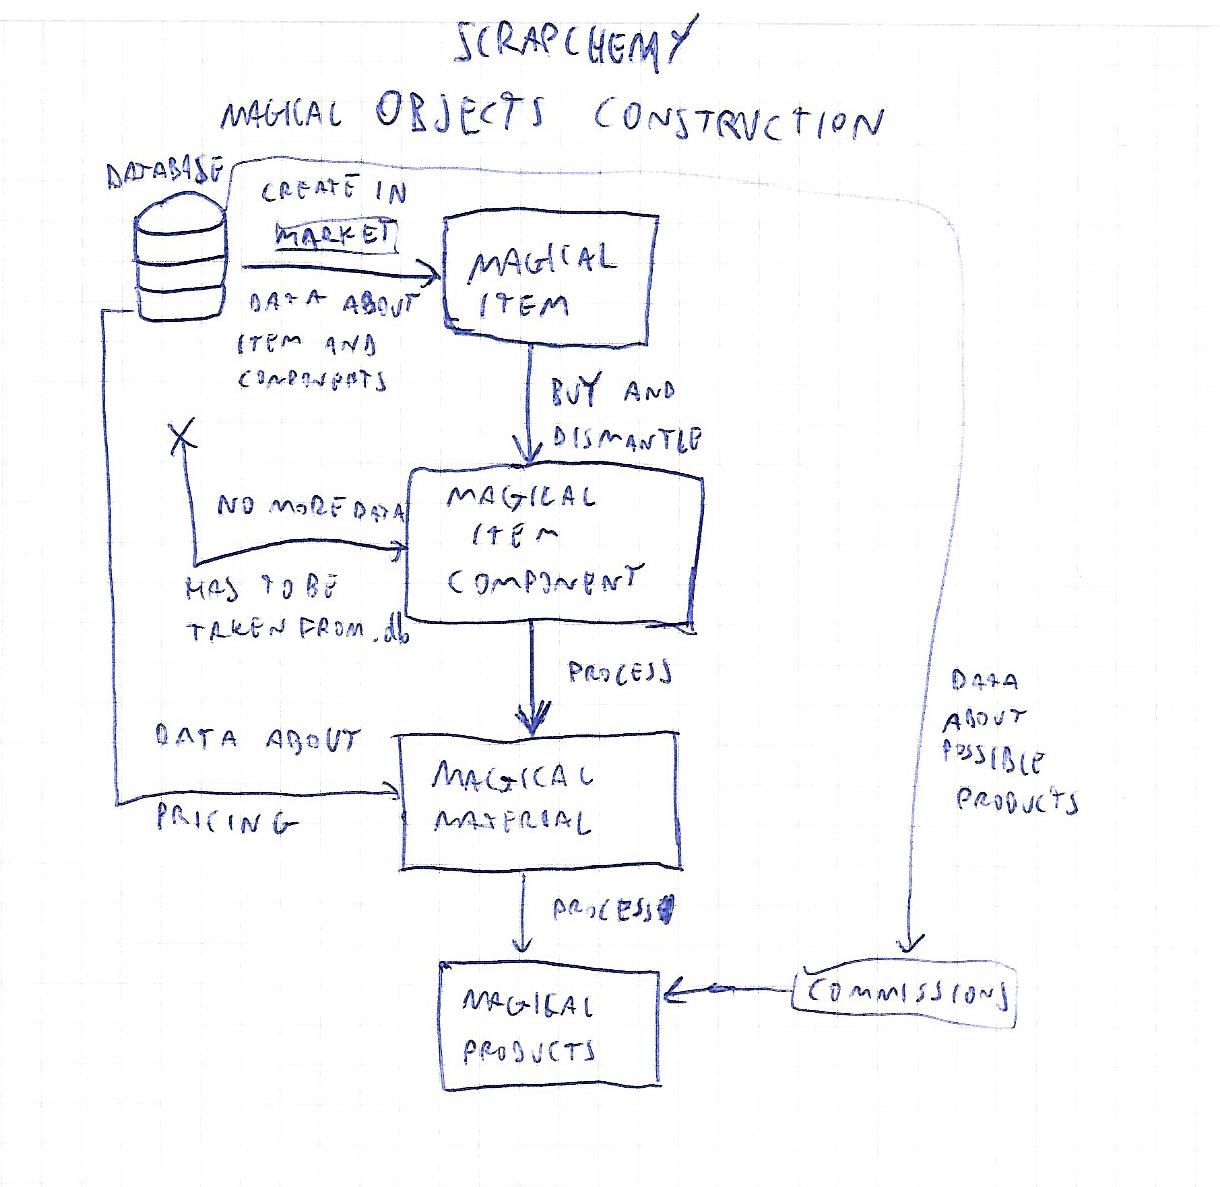 SCRAPCHEMY
MAGICAL OBJECTS CONSTRUCTION
DATABASE
CREATE IN
MARKET
DATA ABOUT
ITEM AND
COMPONENTS
MAGICAL
ITEM
BUY AND
DISMANTLE
NO MORE DATA
HAS TO BE
TAKEN FROM .db
MAGICAL
ITEM
COMPONENT
PROCESS
DATA ABOUT
PRICING
MAGICAL
MATERIAL
DATA
ABOUT
POSSIBLE
PRODUCTS
PROCESS
MAGICAL
PRODUCTS
COMMISSIONS